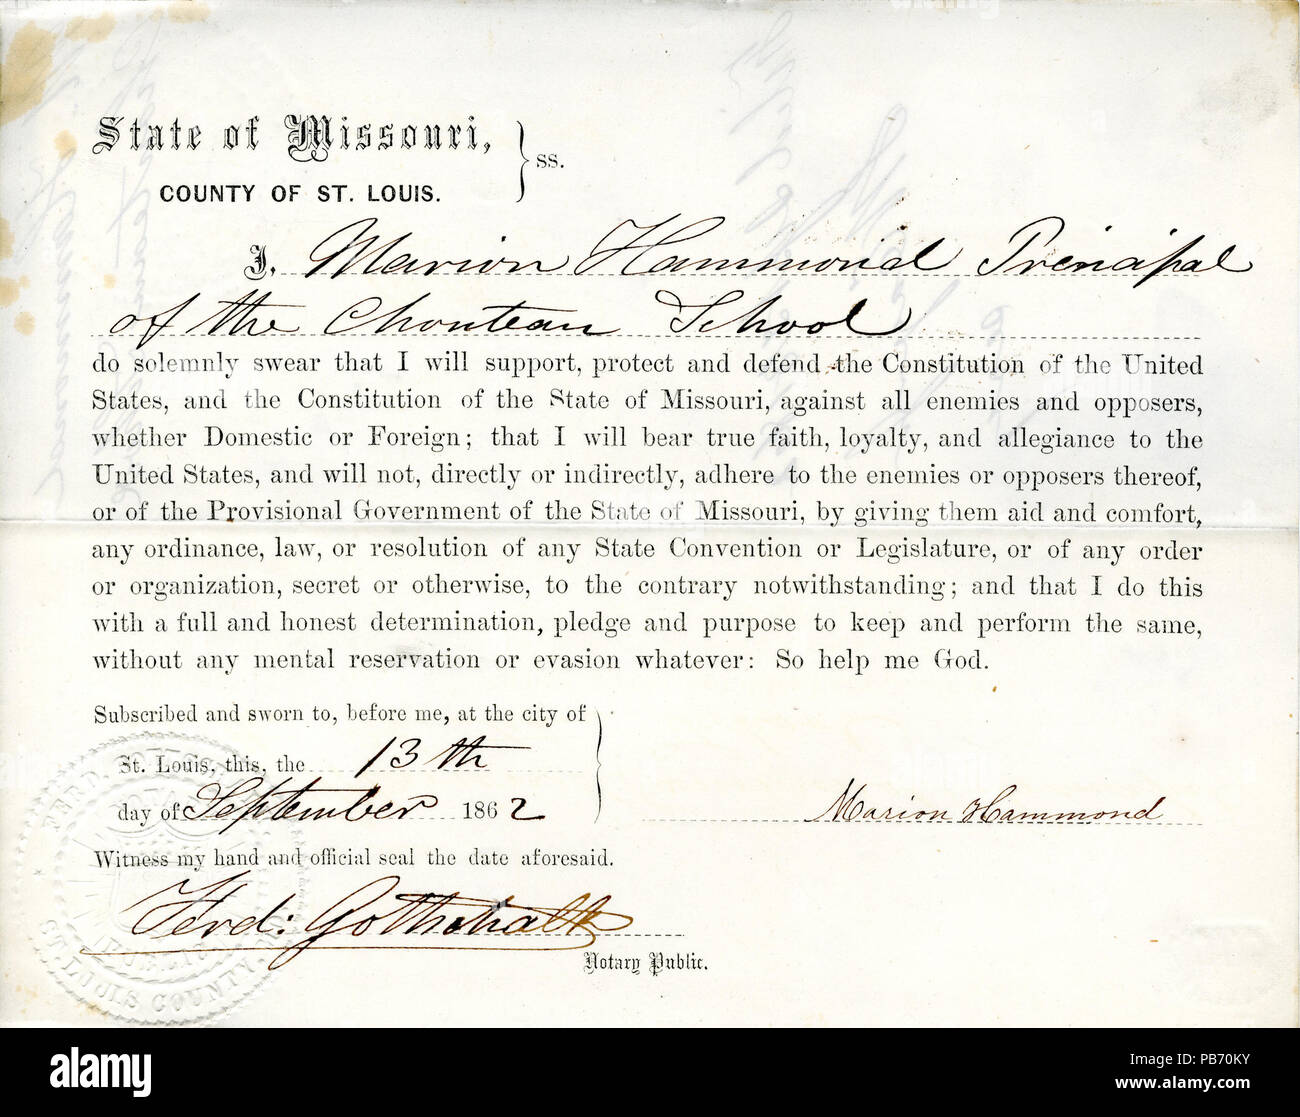 State of Missouri,
COUNTY OF ST. LOUIS.
ss.
I, Marion Hammond Principal
of the Chouteau School
do solemnly swear that I will support, protect and defend the Constitution of the United
States, and the Constitution of the State of Missouri, against all enemies and opposers,
whether Domestic or Foreign; that I will bear true faith, loyalty, and allegiance to the
United States, and will not, directly or indirectly, adhere to the enemies or opposers thereof,
or of the Provisional Government of the State of Missouri, by giving them aid and comfort,
any ordinance, law, or resolution of any State Convention or Legislature, or of any order
or organization, secret or otherwise, to the contrary notwithstanding; and that I do this
with a full and honest determination, pledge and purpose to keep and perform the same,
without any mental reservation or evasion whatever: So help me God.
Subscribed and sworn to, before me, at the city of
St. Louis, this, the 13th
day of September 1862
Marion Hammond
Witness my hand and official seal the date aforesaid.
Ferd: Gottschalk
Notary Public.
FERD.
PUBLIC
ST. LOUIS COUNTY
alamy
alamy
Image ID: PB70KY
www.alamy.com